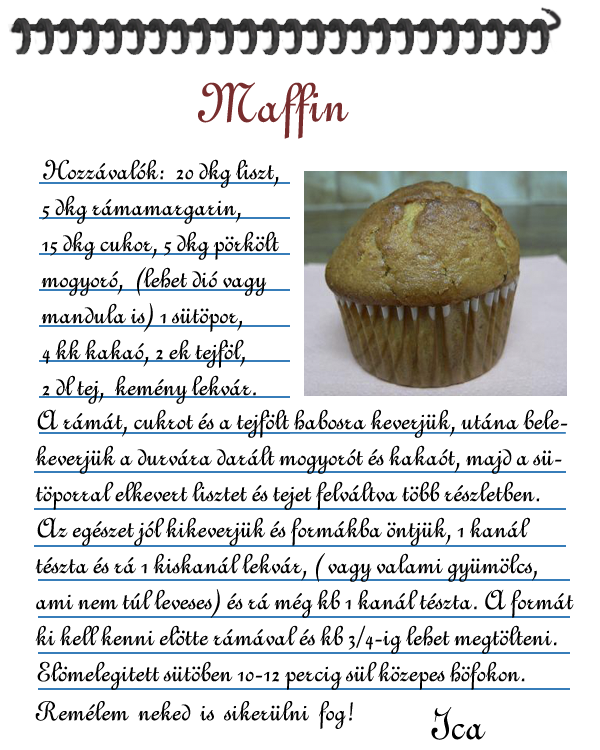 Maffin
Hozzávalók: 20 dkg liszt,
5 dkg rámamargarin,
15 dkg cukor, 5 dkg pörkölt
mogyoró, (lehet dió vagy
mandula is) 1 sütöpor,
4 kk kakaó, 2 ek tejföl,
2 dl tej, kemény lekvár.
A rámát, cukrot és a tejfölt habosra keverjük, utána bele-
keverjük a durvára darált mogyorót és kakaót, majd a sü-
töporral elkevert lisztet és tejet felváltva több részletben.
Az egészet jól kikeverjük és formákba öntjük, 1 kanál
tészta és rá 1 kiskanál lekvár, ( vagy valami gyümölcs,
ami nem túl leveses) és rá még kb 1 kanál tészta. A formát
ki kell kenni elötte rámával és kb 3/4-ig lehet megtölteni.
Elömelegitett sütöben 10-12 percig sül közepes höfokon.
Remélem neked is sikerülni fog!
Ica